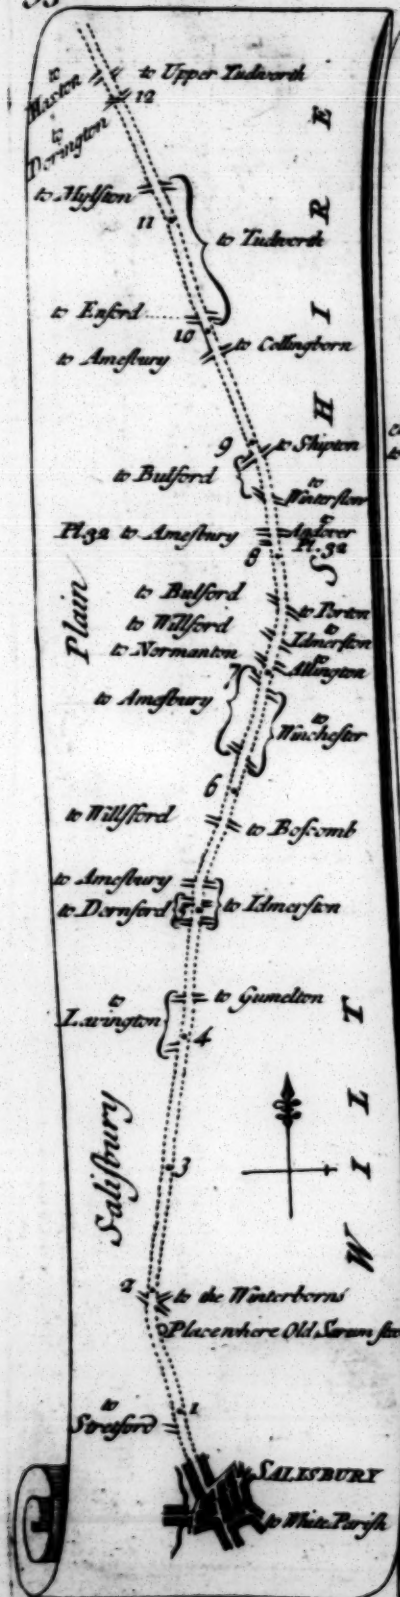 to Upper Tudworth
to
Maxton
12
to
Dorington
to Mylston
11
to Tudworth
to Enford
10
to Collingborn
to Amesbury
9
to Shipton
to Bulford
to
Winterslow
Pl.32 to Amesbury
to
Andover
Pl. 32
8
to Bulford
to Porton
to Willford
to
Idmerston
to Normanton
to
Allington
7
to Amesbury
to
Winchester
6
to Willsford
to Boscomb
to Amesbury
to Dornford
5
to Idmerston
to
Lavington
to Gumelton
4
3
2
to the Winterborns
Place where Old Sarum
1
to
Stretford
SALISBURY
to White Parish
Salisbury Plain
WILTSHIRE